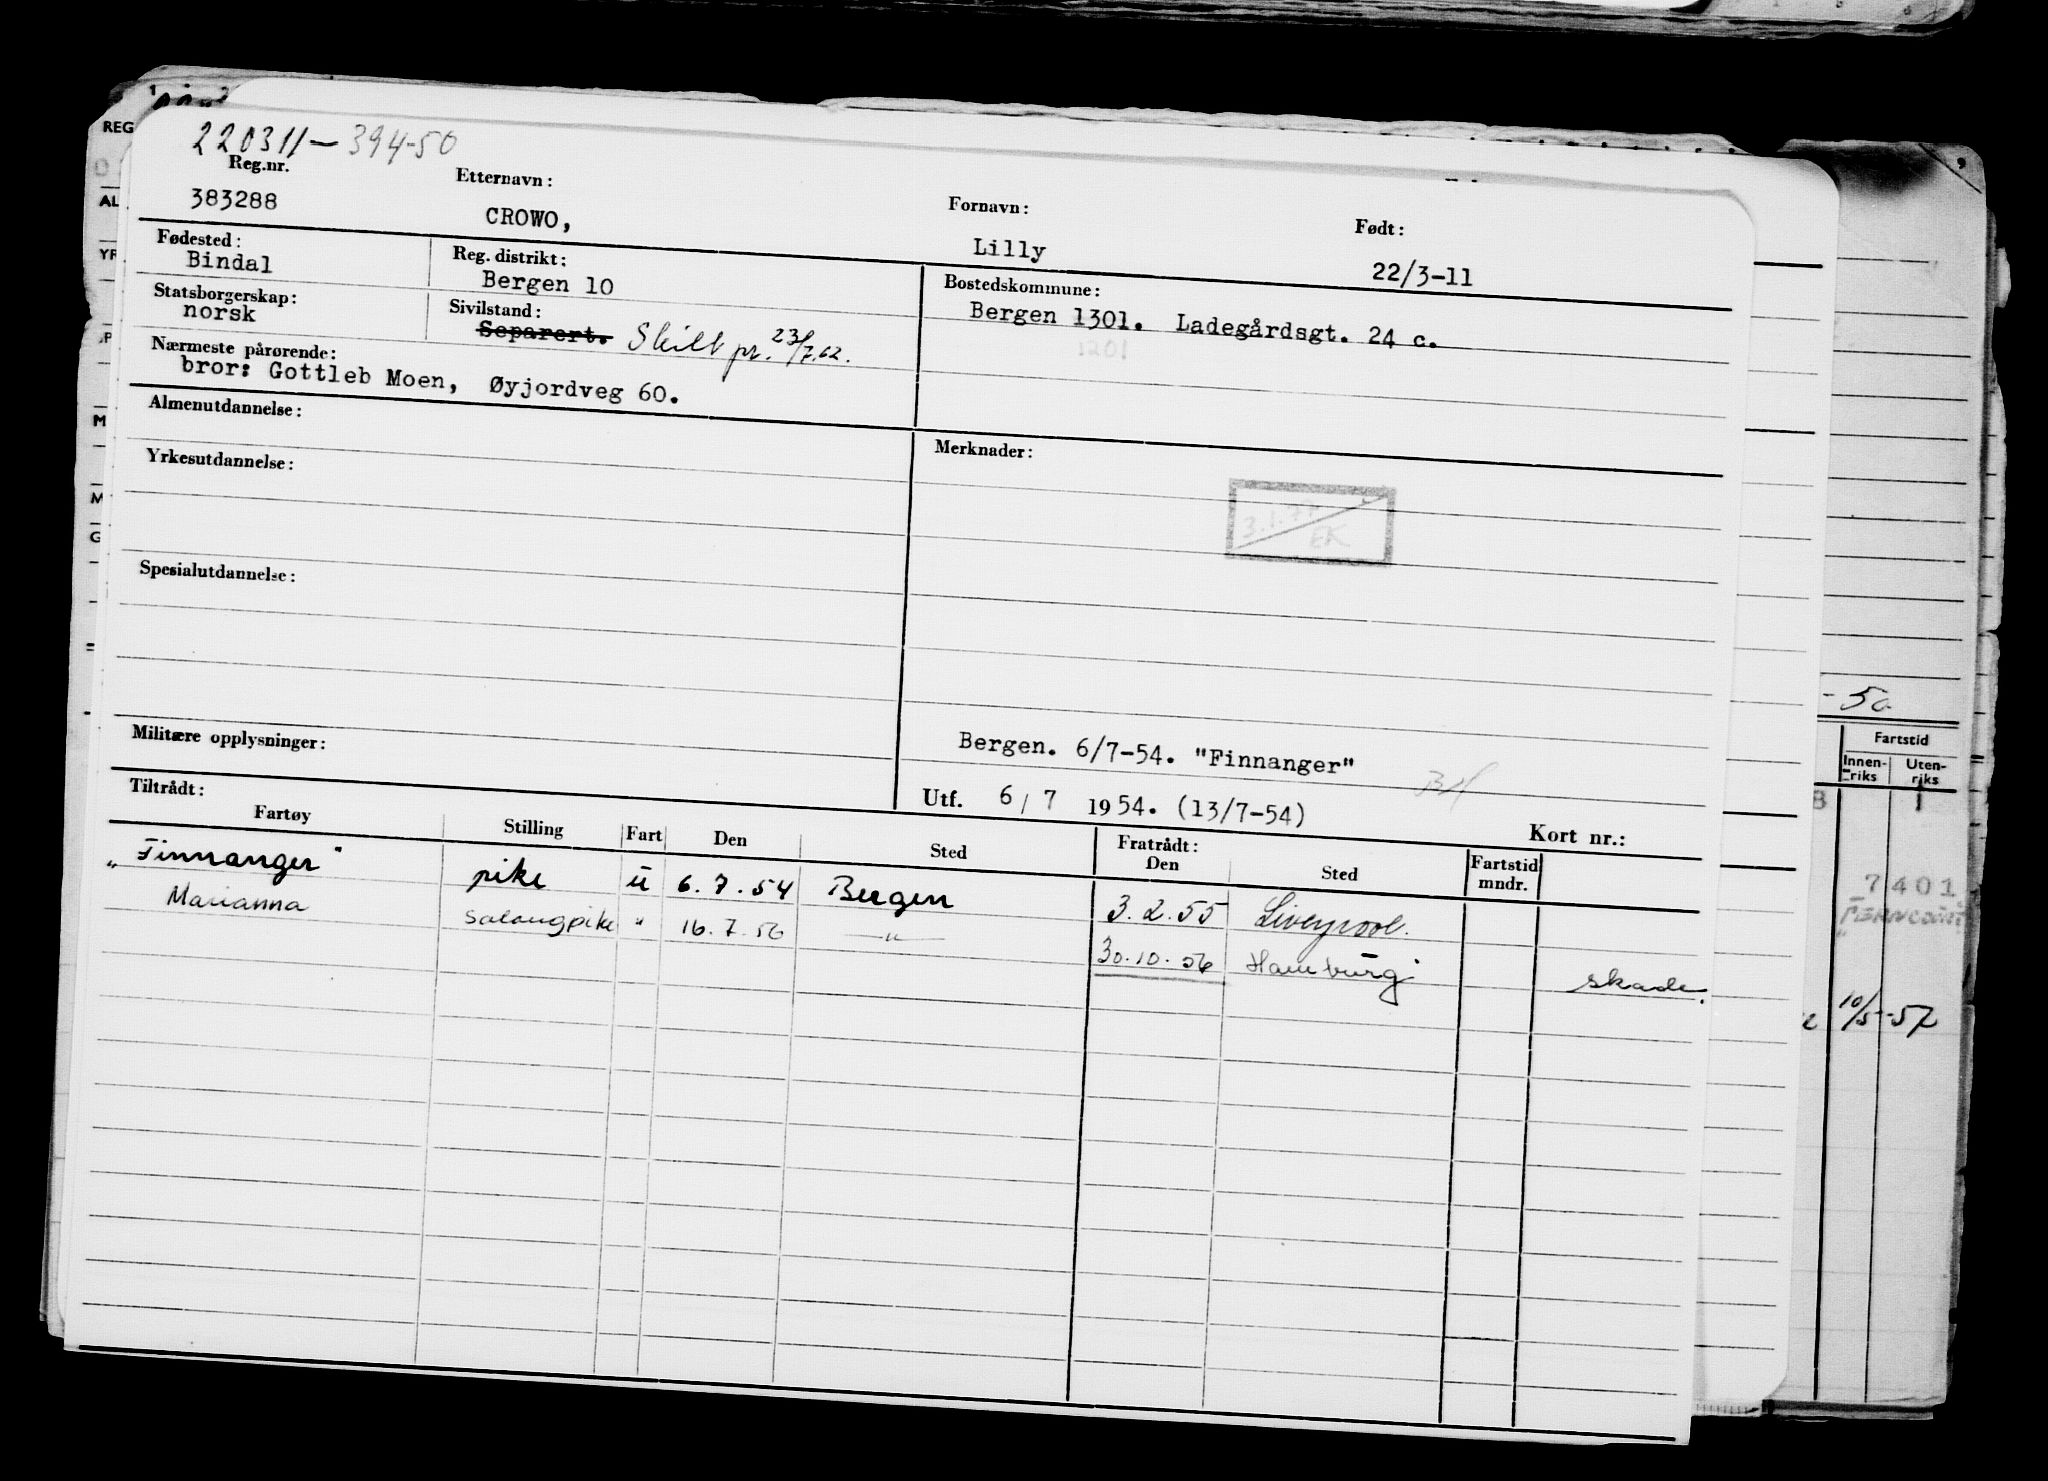 220311-394-50
Reg.nr. Etternavn: Fornavn: Født:
383288 CROWO, Lilly 22/3-11
Fødested: Reg. distrikt: Bostedskommune:
Bindal Bergen 10 Bergen 1301. Ladegårdsgt. 24 c.
1201
Statsborgerskap: Sivilstand:
norsk Separert. Skilt pr. 23/7.62.
Nærmeste pårørende:
bror: Gottleb Moen, Øyjordveg 60.
Almenutdannelse: Merknader:
Yrkesutdannelse:
EK
Spesialutdannelse:
Militære opplysninger: Bergen. 6/7-54. "Finnanger"
Utf. 6/7 1954. (13/7-54) Kort nr.:
Tiltrådt: Fratrådt:
Fartøy Stilling Fart Den Sted Den Sted Fartstid mndr.
"Finnanger" pike u 6.7.54 Bergen 3.2.55 Liverpool.
Marianna salongpike " 16.7.56 —"— 30.10.56 Hamburg skade.
REG
AL
YR
M
M
G
-50
Fartstid
Innen-riks Uten-riks
8 1
7401
10/5-57